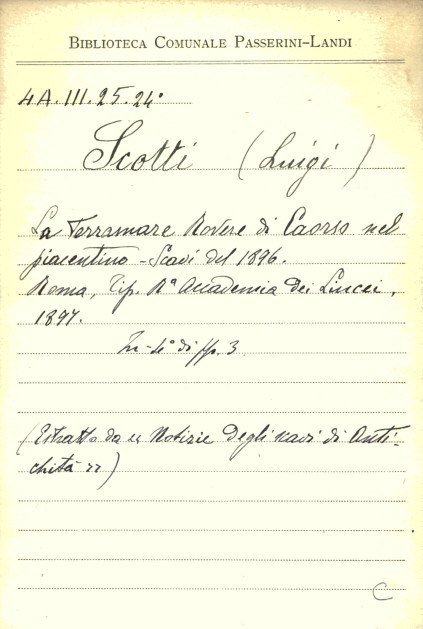 BIBLIOTECA COMUNALE PASSERINI-LANDI
4A.III.25.24°
Scotti (Luigi)
La Terramare Rovere di Caorso nel
piacentino - Scavi del 1896.
Roma, Tip. Rª Accademia dei Lincei,
1897.
In-4° di pp. 3
(Estratto da "Notizie degli scavi di Anti-
chità")
C